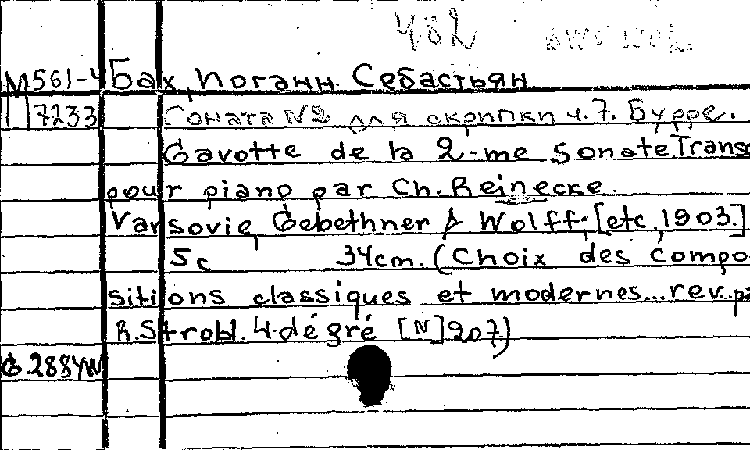 482
М561-4 Бах, Иоганн Себастьян
7233 Соната №2 для скрипки ч.7. Бурре.
Gavotte de la 2-me Sonate. Trans
pour piano par Ch. Reinecke.
Varsovie, Gebethner & Wolff. [etc, 1903.]
5c 34cm. (Choix des compo
sitions classiques et modernes... rev. p
R. Strobl. 4 dégré [N] 207)